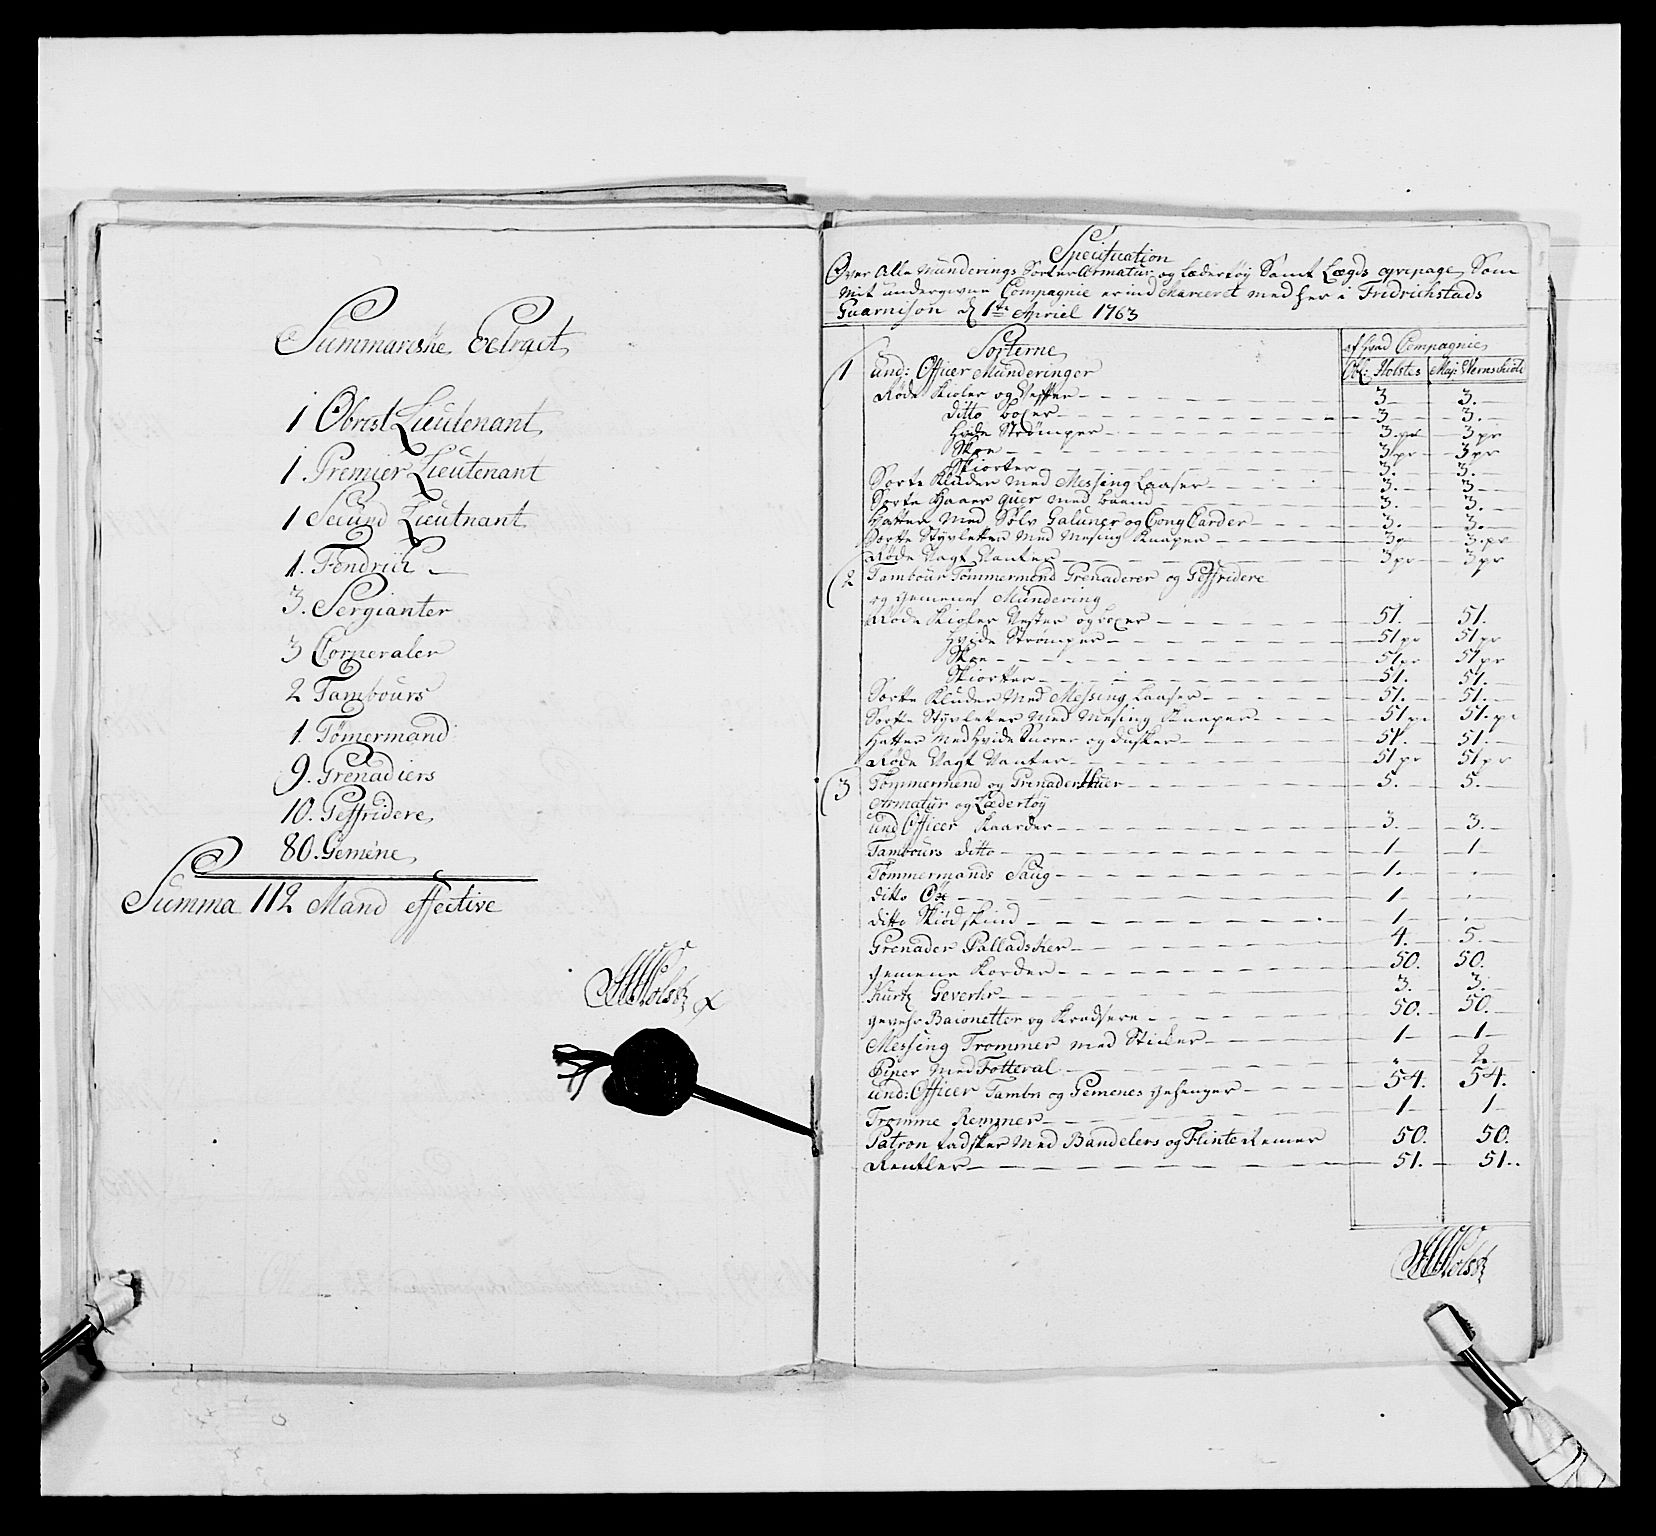 Summariske Extract
1 Obrist Lieutenant
1. Premier Lieutenant
1 Secund Lieutnant
1. Fendrich
3. Sergianter
3 Corperaler
2 Tambours
1. Tømermand
9. Grenadiers
10. Geffridere
80. Gemene
Summa 112 Mand effective
Holst
Specification
Over Alle Munderings Sorter Armatur og Lædertøy Samt Lægds eqvipage, Som
Mit undergivne Compagnie er ind Marceret med her i Fredrichstads
Guarnison d 1te Apriel 1763
Sorterne
af hvad Compagnie
Obl: Holstes Maj: Wernschiold
1 und: Officer Munderinger
Røde Kioler og Vester 3 3.
Ditto boxer 3 3.
Hvide Strömper 3 pr 3 pr
Skoe 3 pr 3 pr
Skiorter 3. 3.
Sorte Kluder med Messing Laaser 3. 3
Sorte Haar med baand 3. 3.
Hatter Med Sölv Galuner og 3. 3.
Sorte Styvletter Med Mesing Knaper 3 3. pr
Røde Vagt Vanter 3 pr 3 pr
2 Tambour Tømmermend Grenaderer og Geffridere
og gemenes Mundering
Røde Kioler Vester og boxer 51. 51.
Hvide Strömper 51 pr 51 pr
Skoe 51 pr 51 pr
Skiorter 51. 51.
Sorte Kluder Med Messing Laaser 51. 51.
Sorte Styvletter Med Mesing Knaper 51 p. 51. p.
Hatter Med Hvide Snorer og dusker 51. 51.
Røde Vagt Vanter 51 pr 51 pr
3 Tømmermend og Grenader Huer 5. 5.
Armatur og Lædertøy
und Officer Kaarder 3. 3.
Tambours ditto 1 1
Tømmermands Saug 1
ditto Öxe 1
ditto Skiødskind 1
Grenader Palladsker 4. 5.
gemene Korder 50. 50.
Kurtz Gevehr 3. 3.
gevehr Baionetter og Kradsere 50. 50.
Messing Trommer med Sticker 1 1
Piper Med Fotteral 2.
und: Officer Tambr og Gemenes gehenger 54. 54.
Tromme Remmer 1 1
Patron tadsker Med Bandelers og Flinte Remer 50. 50.
Rentzler 51. 51.
Holst